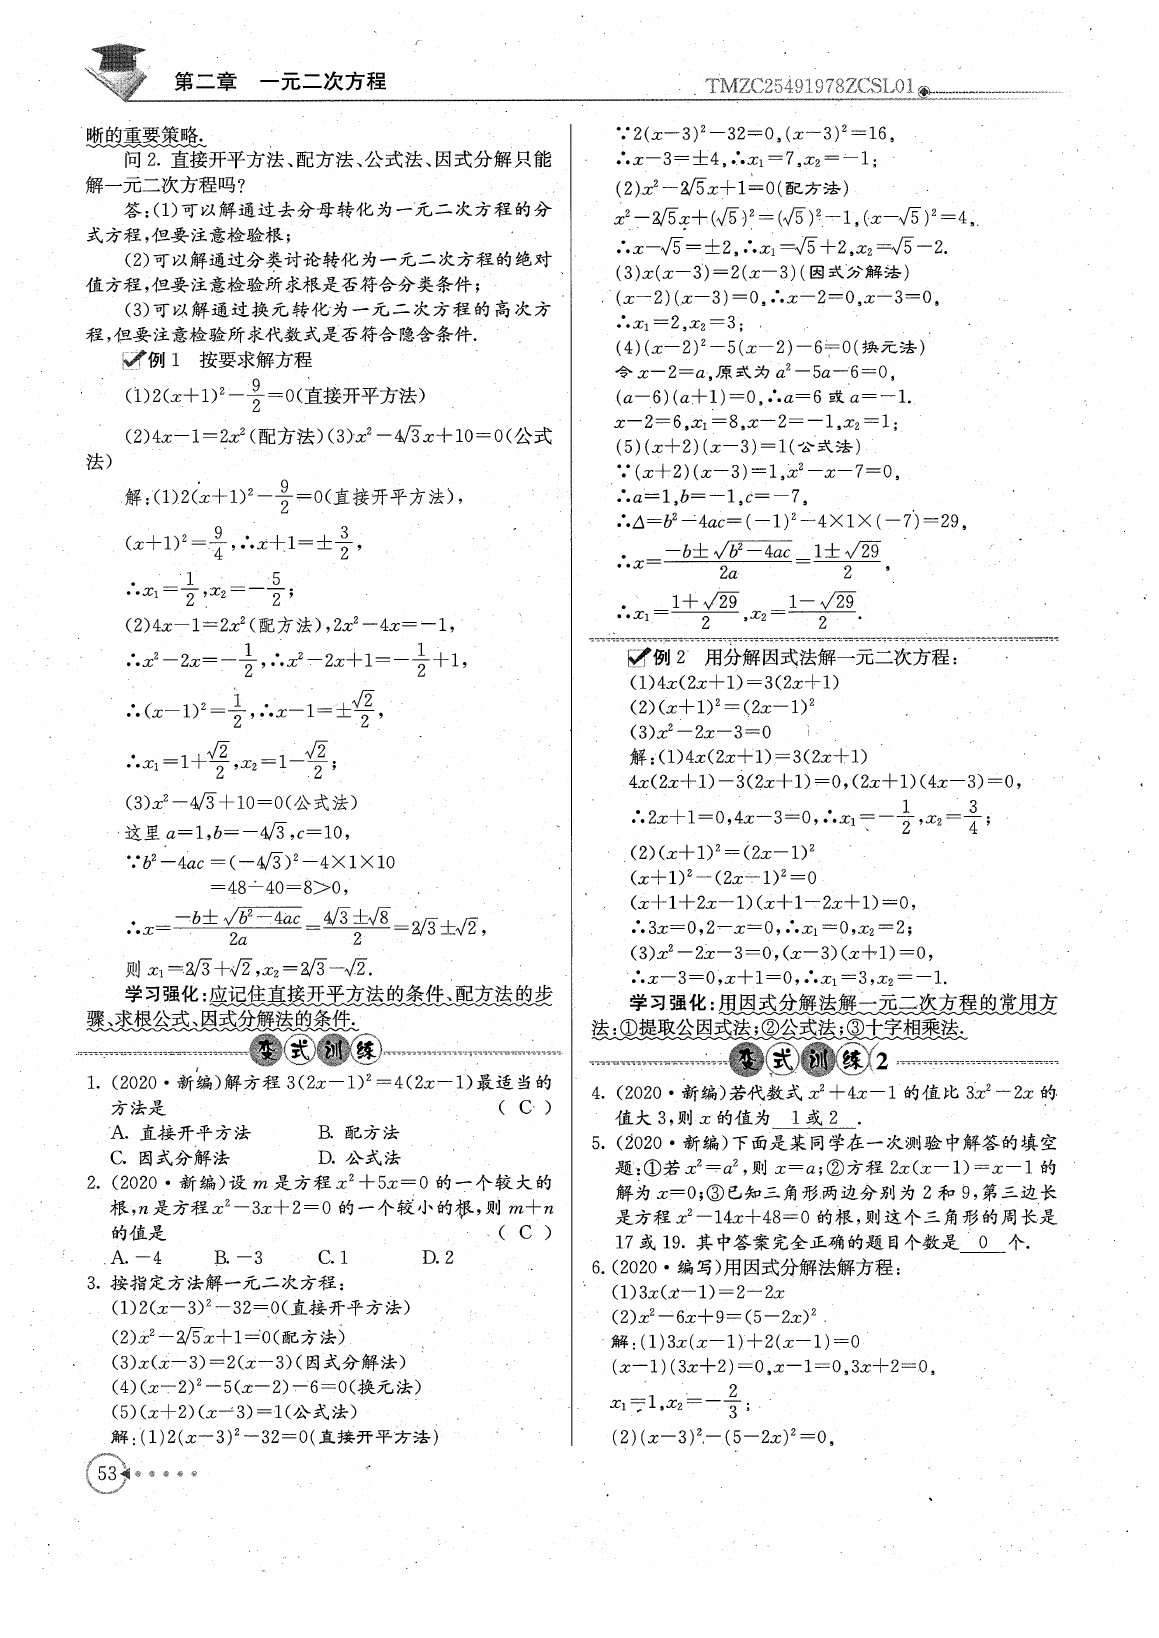 第二章 一元二次方程
TMZC25491978ZCSL01
晰的重要策略.
问 2. 直接开平方法、配方法、公式法、因式分解只能
解一元二次方程吗?
答:(1)可以解通过去分母转化为一元二次方程的分
式方程,但要注意检验根;
(2)可以解通过分类讨论转化为一元二次方程的绝对
值方程,但要注意检验所求根是否符合分类条件;
(3)可以解通过换元转化为一元二次方程的高次方
程,但要注意检验所求代数式是否符合隐含条件.
例 1 按要求解方程
(1)2(x+1)²-9/2=0(直接开平方法)
(2)4x-1=2x²(配方法)(3)x²-4√3x+10=0(公式
法)
解:(1)2(x+1)²-9/2=0(直接开平方法),
(x+1)²=9/4,∴x+1=±3/2,
∴x₁=1/2,x₂=-5/2;
(2)4x-1=2x²(配方法),2x²-4x=-1,
∴x²-2x=-1/2,∴x²-2x+1=-1/2+1,
∴(x-1)²=1/2,∴x-1=±√2/2,
∴x₁=1+√2/2,x₂=1-√2/2;
(3)x²-4√3+10=0(公式法)
这里 a=1,b=-4√3,c=10,
∵b²-4ac=(-4√3)²-4×1×10
=48-40=8>0,
∴x=(-b±√(b²-4ac))/2a=(4√3±√8)/2=2√3±√2,
则 x₁=2√3+√2,x₂=2√3-√2.
学习强化:应记住直接开平方法的条件、配方法的步
骤、求根公式、因式分解法的条件.
变式训练
1. (2020·新编)解方程 3(2x-1)²=4(2x-1)最适当的
方法是 ( C )
A. 直接开平方法 B. 配方法
C. 因式分解法 D. 公式法
2. (2020·新编)设 m 是方程 x²+5x=0 的一个较大的
根,n 是方程 x²-3x+2=0 的一个较小的根,则 m+n
的值是 ( C )
A. -4 B. -3 C. 1 D. 2
3. 按指定方法解一元二次方程:
(1)2(x-3)²-32=0(直接开平方法)
(2)x²-2√5x+1=0(配方法)
(3)x(x-3)=2(x-3)(因式分解法)
(4)(x-2)²-5(x-2)-6=0(换元法)
(5)(x+2)(x-3)=1(公式法)
解:(1)2(x-3)²-32=0(直接开平方法)
53
∵2(x-3)²-32=0,(x-3)²=16,
∴x-3=±4,∴x₁=7,x₂=-1;
(2)x²-2√5x+1=0(配方法)
x²-2√5x+(√5)²=(√5)²-1,(x-√5)²=4,
∴x-√5=±2,∴x₁=√5+2,x₂=√5-2.
(3)x(x-3)=2(x-3)(因式分解法)
(x-2)(x-3)=0,∴x-2=0,x-3=0,
∴x₁=2,x₂=3;
(4)(x-2)²-5(x-2)-6=0(换元法)
令 x-2=a,原式为 a²-5a-6=0,
(a-6)(a+1)=0,∴a=6 或 a=-1.
x-2=6,x₁=8,x-2=-1,x₂=1;
(5)(x+2)(x-3)=1(公式法)
∵(x+2)(x-3)=1,x²-x-7=0,
∴a=1,b=-1,c=-7,
∴△=b²-4ac=(-1)²-4×1×(-7)=29,
∴x=(-b±√(b²-4ac))/2a=(1±√29)/2,
∴x₁=(1+√29)/2,x₂=(1-√29)/2.
例 2 用分解因式法解一元二次方程:
(1)4x(2x+1)=3(2x+1)
(2)(x+1)²=(2x-1)²
(3)x²-2x-3=0
解:(1)4x(2x+1)=3(2x+1)
4x(2x+1)-3(2x+1)=0,(2x+1)(4x-3)=0,
∴2x+1=0,4x-3=0,∴x₁=-1/2,x₂=3/4;
(2)(x+1)²=(2x-1)²
(x+1)²-(2x-1)²=0
(x+1+2x-1)(x+1-2x+1)=0,
∴3x=0,2-x=0,∴x₁=0,x₂=2;
(3)x²-2x-3=0,(x-3)(x+1)=0,
∴x-3=0,x+1=0,∴x₁=3,x₂=-1.
学习强化:用因式分解法解一元二次方程的常用方
法:①提取公因式法;②公式法;③十字相乘法.
变式训练2
4. (2020·新编)若代数式 x²+4x-1 的值比 3x²-2x 的
值大 3,则 x 的值为 1或2 .
5. (2020·新编)下面是某同学在一次测验中解答的填空
题:①若 x²=a²,则 x=a;②方程 2x(x-1)=x-1 的
解为 x=0;③已知三角形两边分别为 2 和 9,第三边长
是方程 x²-14x+48=0 的根,则这个三角形的周长是
17 或 19. 其中答案完全正确的题目个数是 0 个.
6. (2020·编写)用因式分解法解方程:
(1)3x(x-1)=2-2x
(2)x²-6x+9=(5-2x)²
解:(1)3x(x-1)+2(x-1)=0
(x-1)(3x+2)=0,x-1=0,3x+2=0,
x₁=1,x₂=-2/3;
(2)(x-3)²-(5-2x)²=0,